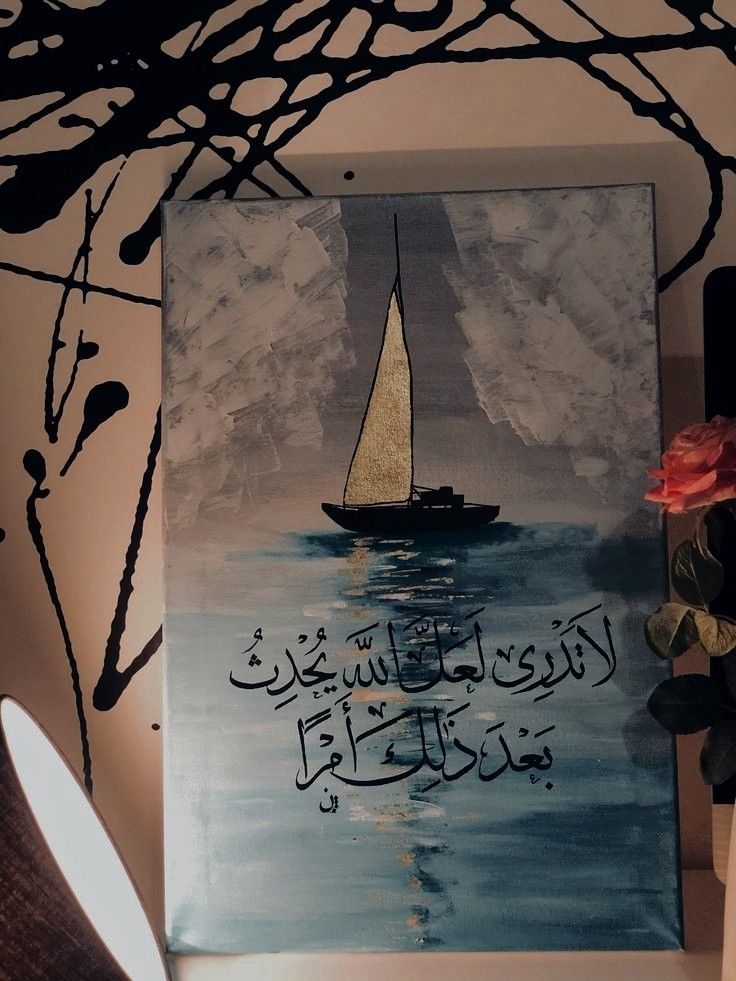 لَا تَدْرِى لَعَلَّ اللَّهَ يُحْدِثُ
بَعْدَ ذَٰلِكَ أَمْرًا